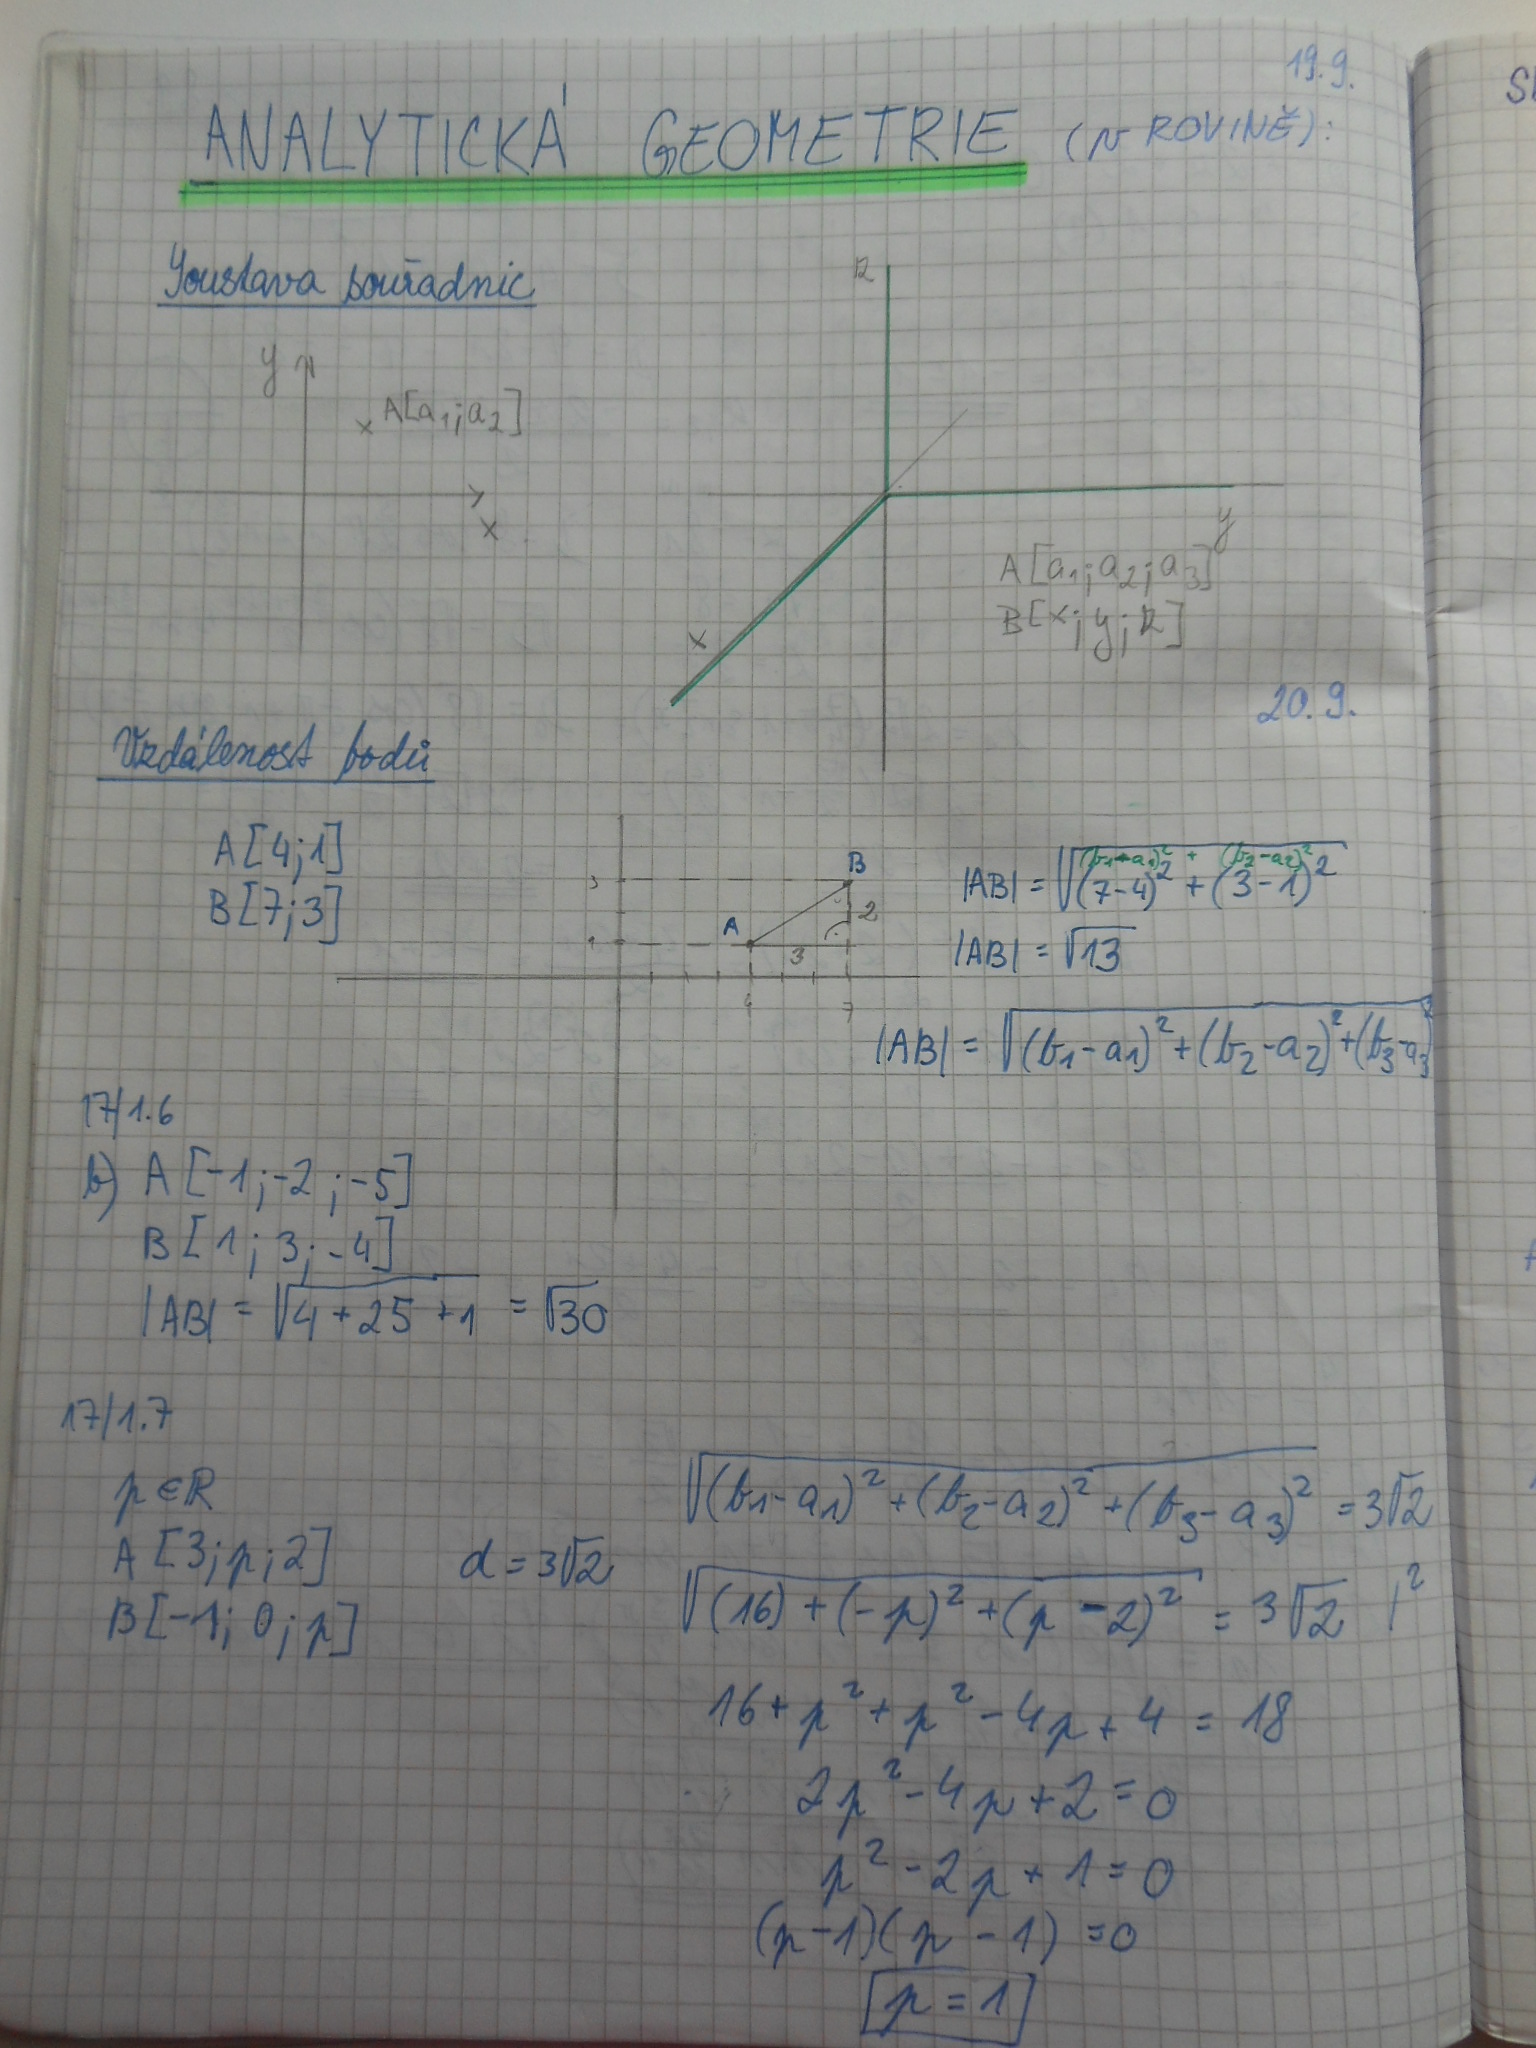 19.9.
ANALYTICKÁ GEOMETRIE (v ROVINĚ):
Soustava souřadnic
y
A[a₁;a₂]
x
z
y
x
A[a₁;a₂;a₃]
B[x;y;z]
20.9.
Vzdálenost bodů
A[4;1]
B[7;3]
3
B
A
2
1
3
4
7
(b₁-a₁)² + (b₂-a₂)²
|AB| = √((7-4)² + (3-1)²)
|AB| = √13
|AB| = √((b₁-a₁)²+(b₂-a₂)²+(b₃-a₃)²)
17/1.6
b) A[-1;-2;-5]
B[1;3;-4]
|AB| = √(4+25+1) = √30
17/1.7
p∈ℝ
A[3;p;2]
B[-1;0;p]
d = 3√2
√((b₁-a₁)²+(b₂-a₂)²+(b₃-a₃)²) = 3√2
√((16)+(-p)²+(p-2)²) = 3√2 |²
16+p²+p²-4p+4 = 18
2p²-4p+2=0
p²-2p+1=0
(p-1)(p-1)=0
p=1